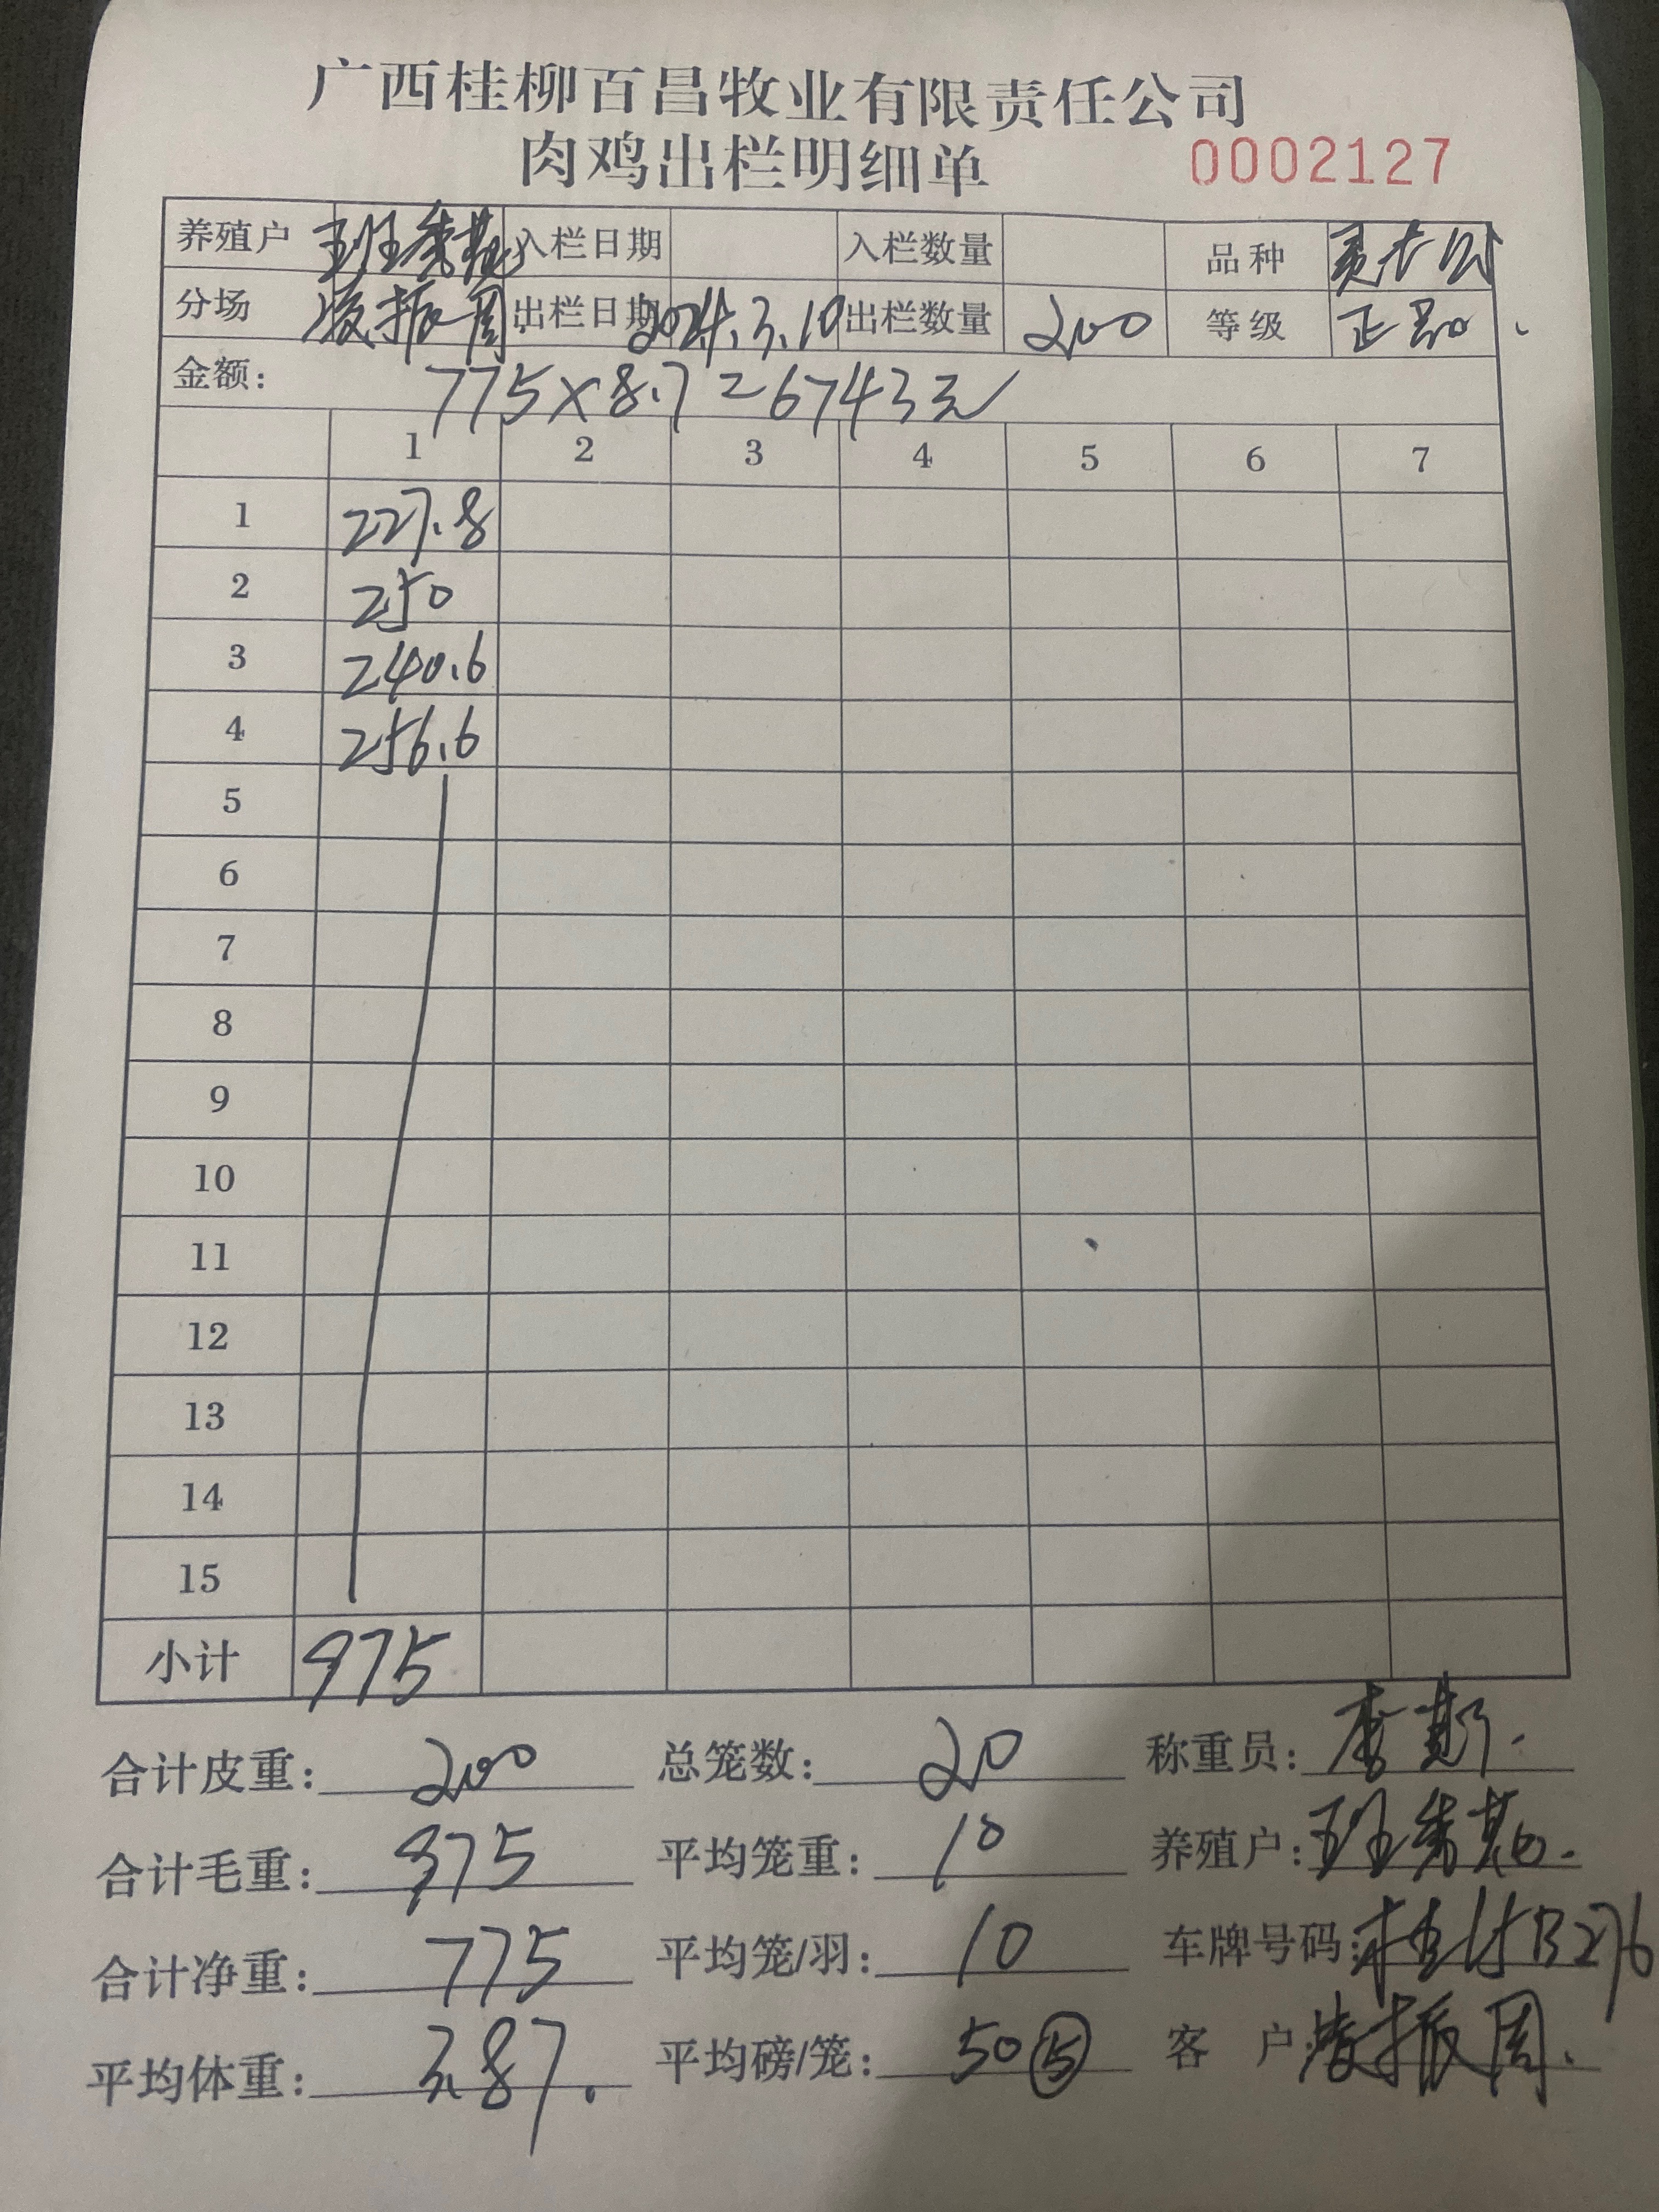 广西桂柳百昌牧业有限责任公司
肉鸡出栏明细单 0002127
养殖户 班秀 入栏日期 入栏数量 品种
分场 凌振周 出栏日期 2024.3.10 出栏数量 200 等级 正品
金额: 775×8.7=6743元
1 2 3 4 5 6 7
1 227.8
2 250
3 240.6
4 256.6
5
6
7
8
9
10
11
12
13
14
15
小计 975
合计皮重: 200 总笼数: 20 称重员: 李
合计毛重: 975 平均笼重: 10 养殖户: 班秀
合计净重: 775 平均笼/羽: 10 车牌号码: 桂
平均体重: 3.87. 平均磅/笼: 50⑤ 客户: 凌振周.